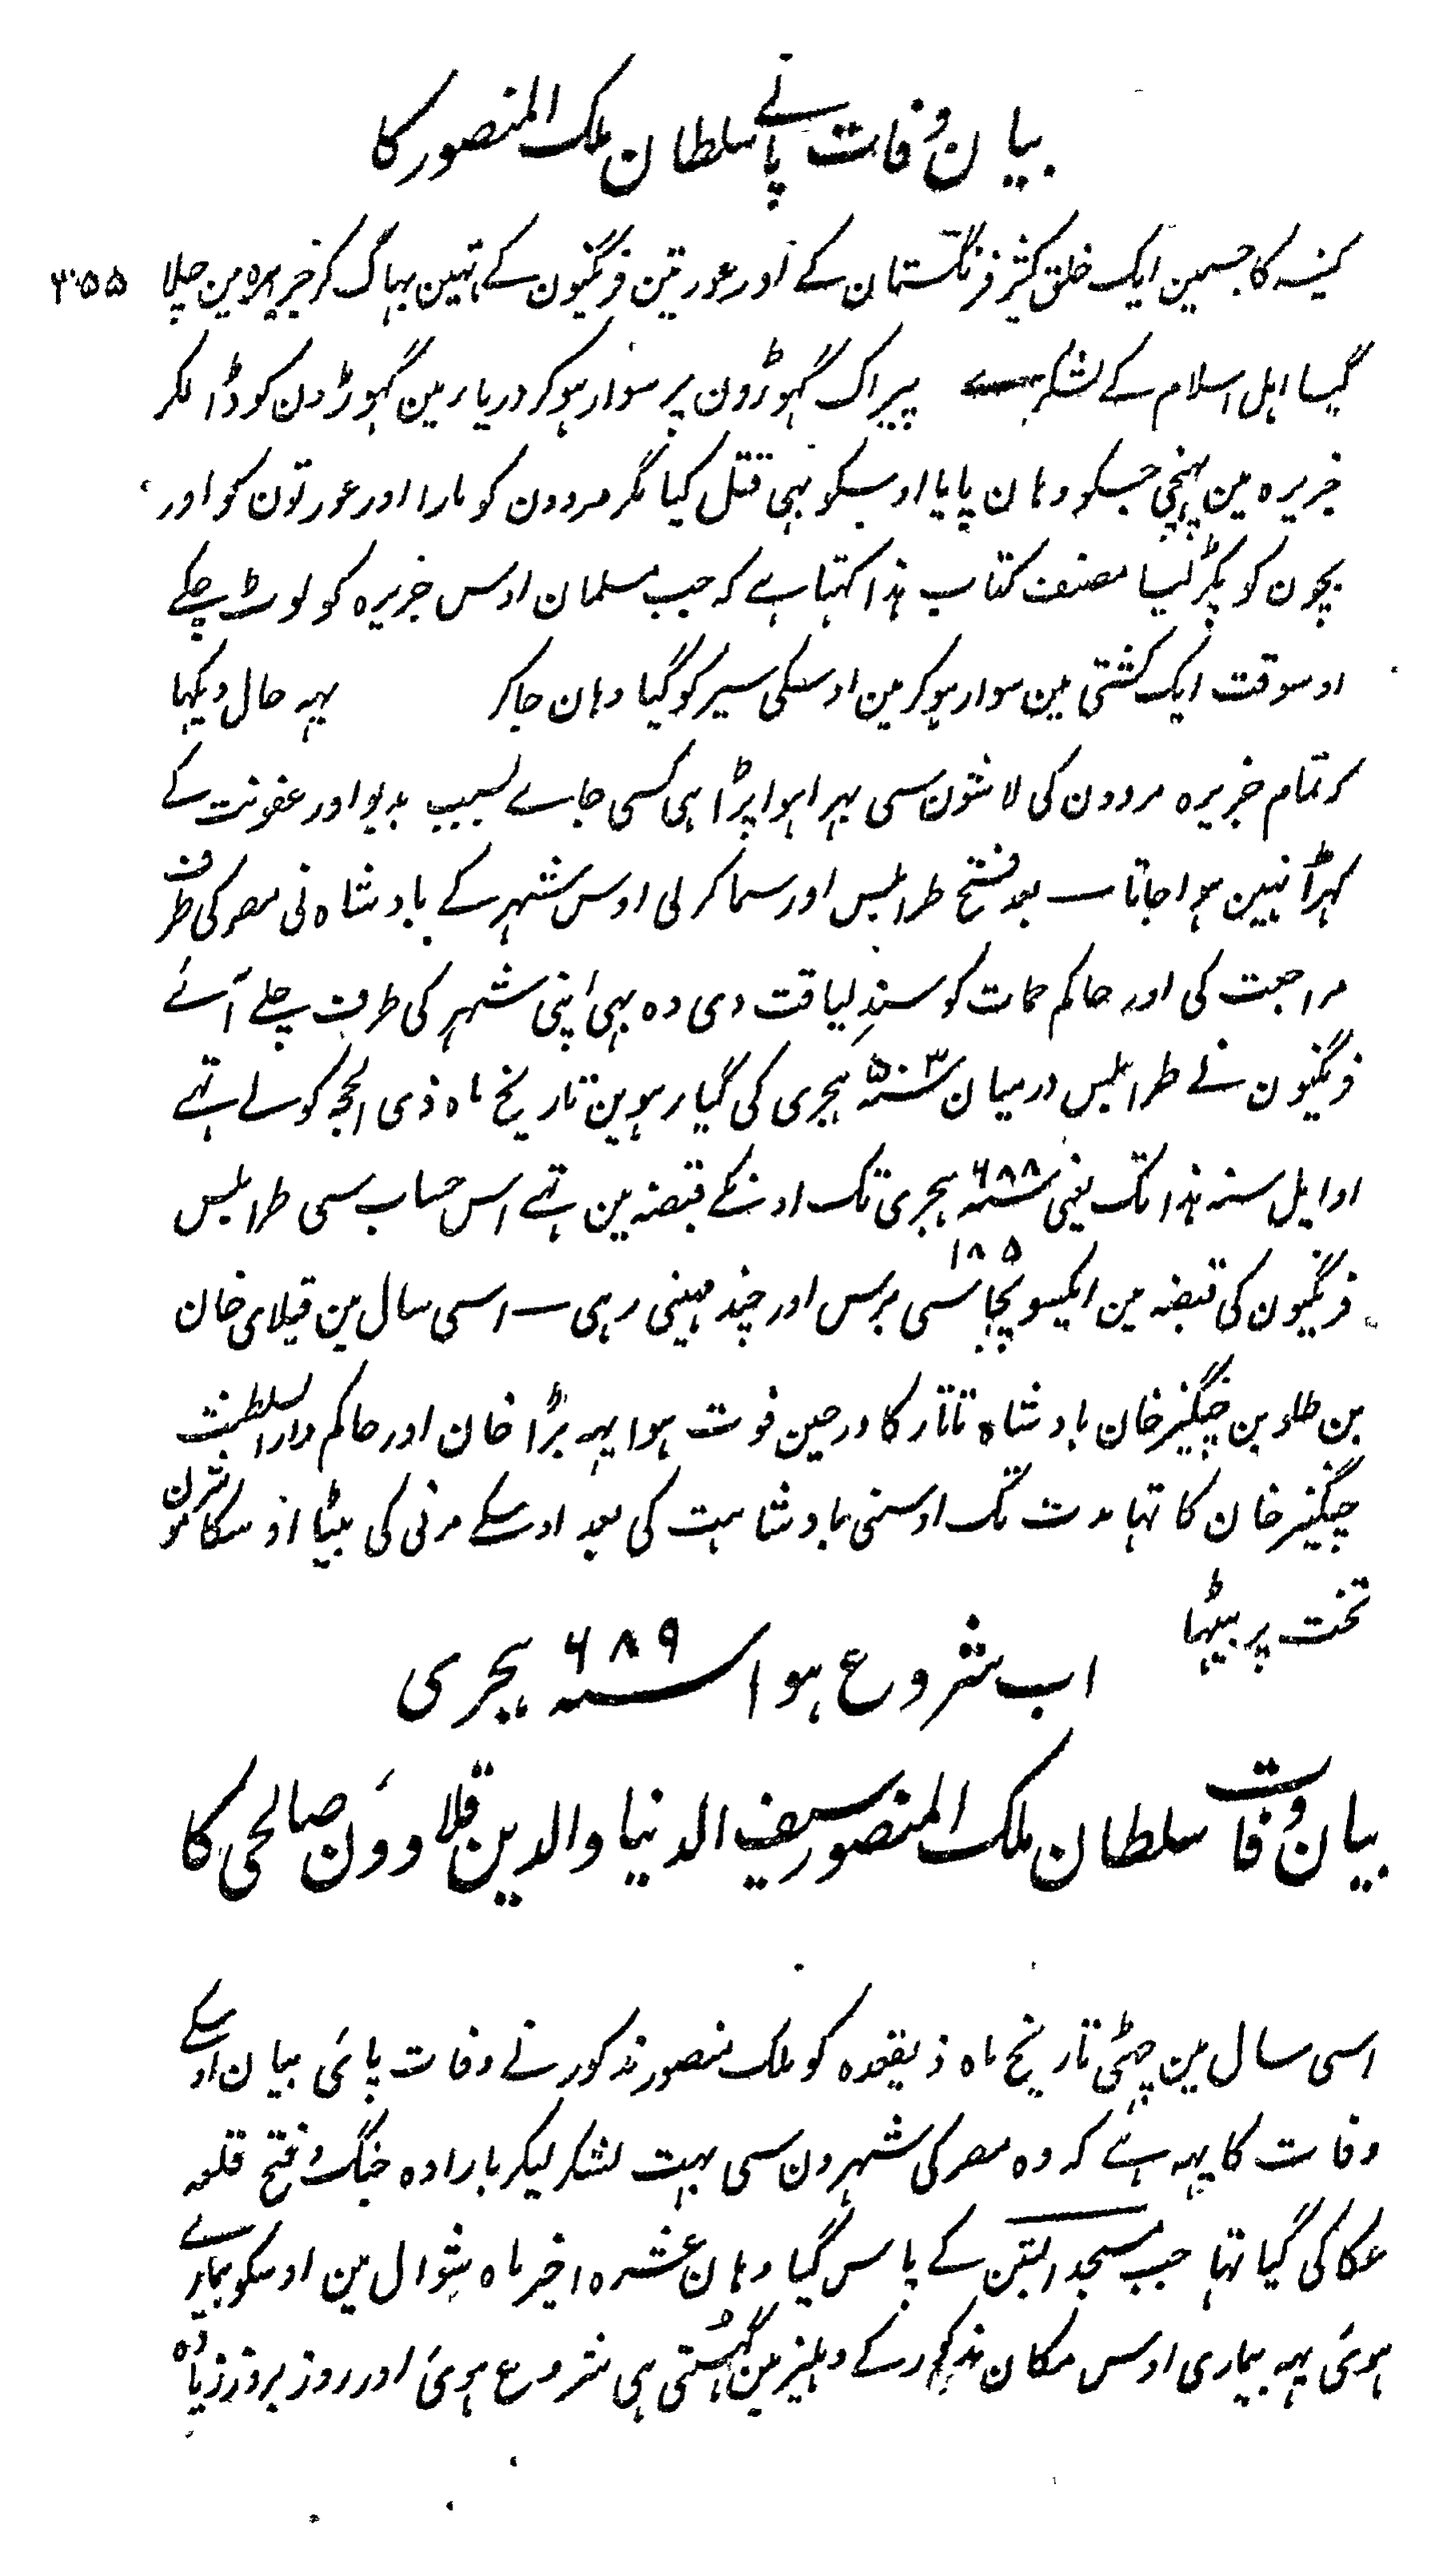 بیان وفات پانے سلطان ملک المنصور کا
۳۵۵
کنیسہ کا جسمین ایک خلق کثیر فرنگستان کے اور عورتین فرنگیون کے تہین بہاگ کر جزیرہ مین چلا
گیا اہل اسلام کے لشکر پیراک گہوڑون پر سوار ہو کر دریا مین گہوڑون کو ڈالکر
جزیرہ مین پہنچی جسکو وہان پایا اوسکو بہی قتل کیا مگر مردون کو مارا اور عورتون کو اور
بچون کو پکڑ لیا مصنف کتاب ہذا کہتا ہے کہ جب مسلمان اوس جزیرہ کو لوٹ چکے
اوسوقت ایک کشتی مین سوار ہو کر مین اوسکی سیر کو گیا وہان جا کر یہہ حال دیکہا
کہ تمام جزیرہ مردون کی لاشون سی بہرا ہوا پڑا ہی کسی جاے بسبب بدبو اور عفونت کے
کہڑا نہین ہوا جاتا ۔ بعد فتح طرابلس اور مسمار کرنے اوس شہر کے بادشاہ نی مصر کی طرف
مراجعت کی اور حاکم حمات کو سندِ لیاقت دی وہ بہی اپنی شہر کی طرف چلے آئے
فرنگیون نے طرابلس درمیان سنہ ۵۰۳ ہجری کی گیارہوین تاریخ ماہ ذی الحجہ کو لے تہے
اوایل سنہ ہذا تک یعنی سنہ ۶۸۸ ہجری تک اونکے قبضہ مین تہے اس حساب سی طرابلس
فرنگیون کی قبضہ مین ایکسو پچاسی ۱۸۵ برس اور چند مہینی رہی ۔ اسی سال مین قبلای خان
بن طلو بن چنگیز خان بادشاہ تاتار کا درچین فوت ہوا یہہ بڑا خان اور حاکم دارالسلطنت
چنگیز خان کا تہا مدت تک اوسنی بادشاہت کی بعد اوسکے مرنی کی بیٹا اوسکا شرمون
تخت پر بیٹہا
اب شروع ہوا سنہ ۶۸۹ ہجری
بیان وفات سلطان ملک المنصور سیف الدنیا والدین قلاوون صالحی کا
اسی سال مین چہٹی تاریخ ماہ ذیقعدہ کو ملک منصور مذکور نے وفات پائی بیان اوسکے
وفات کا یہہ ہے کہ وہ مصر کی شہرون سی بہت لشکر لیکر بارادہ جنگ و فتح قلعہ
عکا کی گیا تہا جب مسجد التبن کے پاس گیا وہان عشرہ اخیر ماہ شوال مین اوسکو بیماری
ہوئی یہہ بیماری اوس مکان مذکور کے دہلیز مین گہستی ہی شروع ہوئی اور روز بروز زیادہ